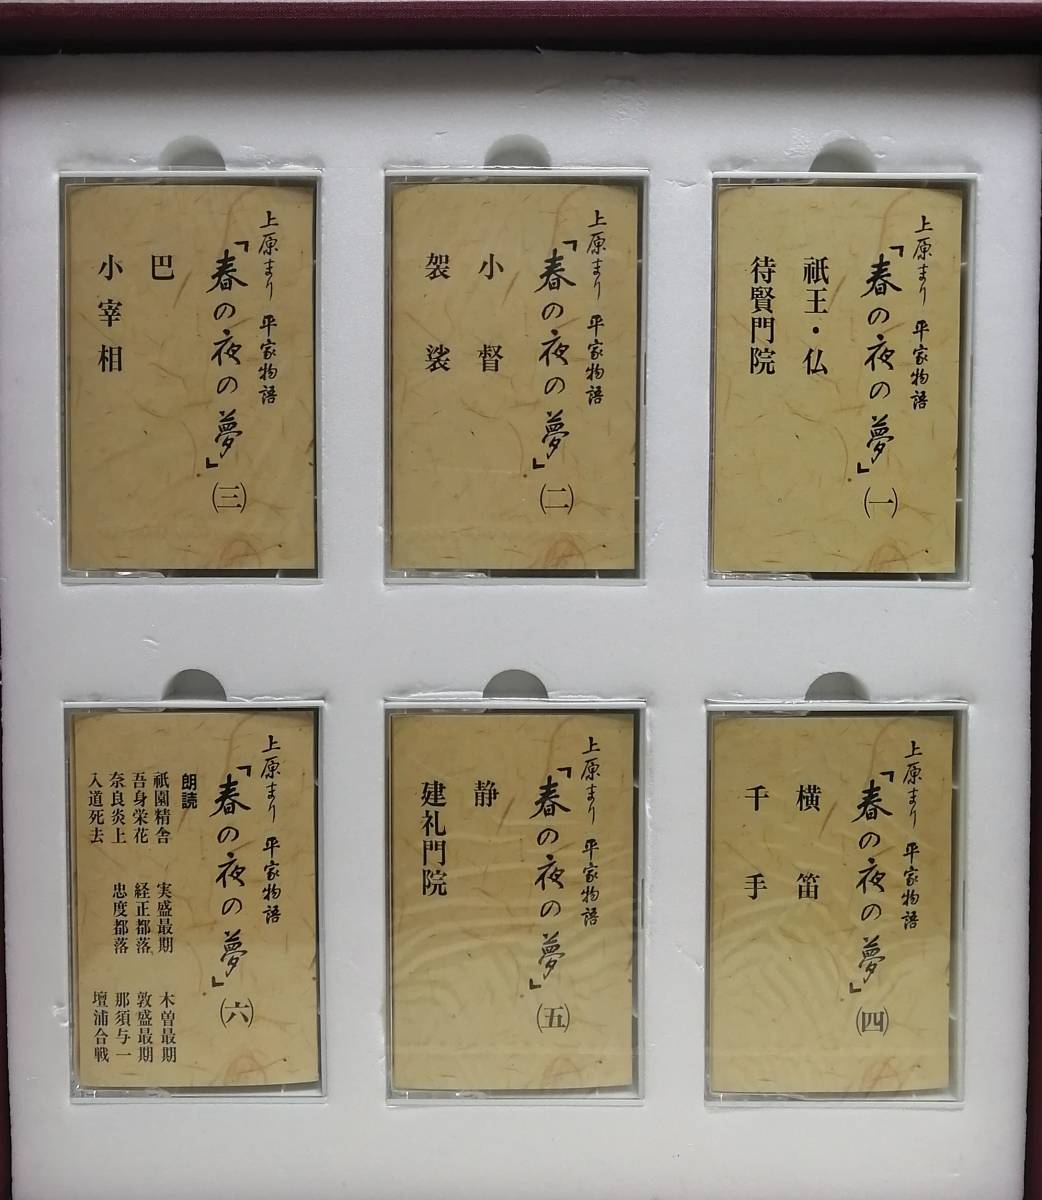 上原まり 平家物語
「春の夜の夢」(一)
祇王・仏
待賢門院
上原まり 平家物語
「春の夜の夢」(二)
小督
袈裟
上原まり 平家物語
「春の夜の夢」(三)
巴
小宰相
上原まり 平家物語
「春の夜の夢」(四)
横笛
千手
上原まり 平家物語
「春の夜の夢」(五)
静
建礼門院
上原まり 平家物語
「春の夜の夢」(六)
朗読
祇園精舎 実盛最期 木曽最期
吾身栄花 経正都落 敦盛最期
奈良炎上 忠度都落 那須与一
入道死去 壇浦合戦